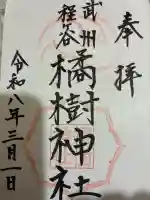 奉拝
武州
程ヶ谷
橘樹神社
令和八年三月一日